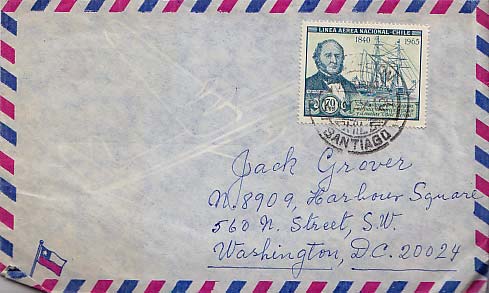 LINEA AEREA NACIONAL-CHILE
1840 1965
SANTIAGO
Jack Grover
N. 8909, Harbour Square
560 N. Street, S.W.
Washington, D.C. 20024